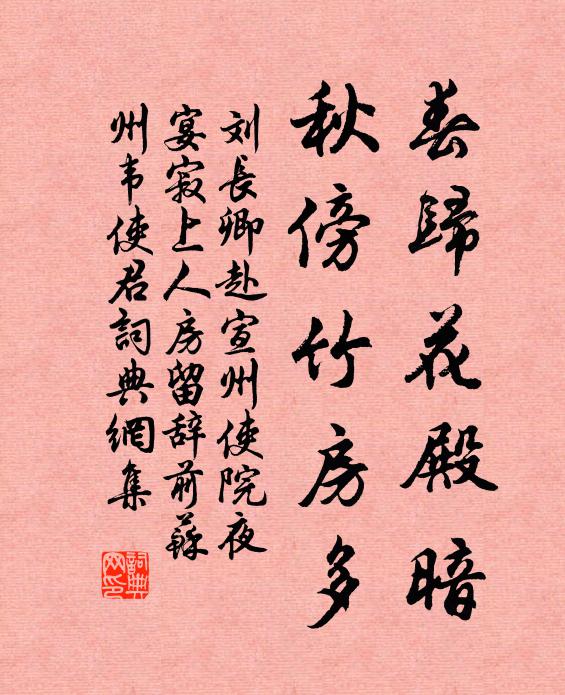 春歸花殿暗
秋傍竹房多
刘長卿赴宣州使院夜
宴寂上人房留辞前蘇
州韦使君詞典網集
詞典网印